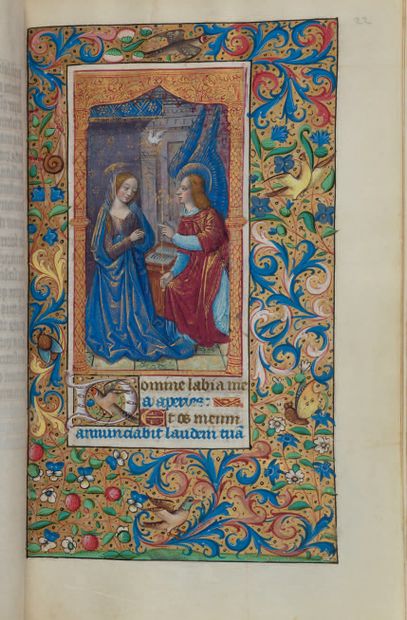 22
Domine labia me
a aperies:
Et os meum
annunciabit laudem tuã